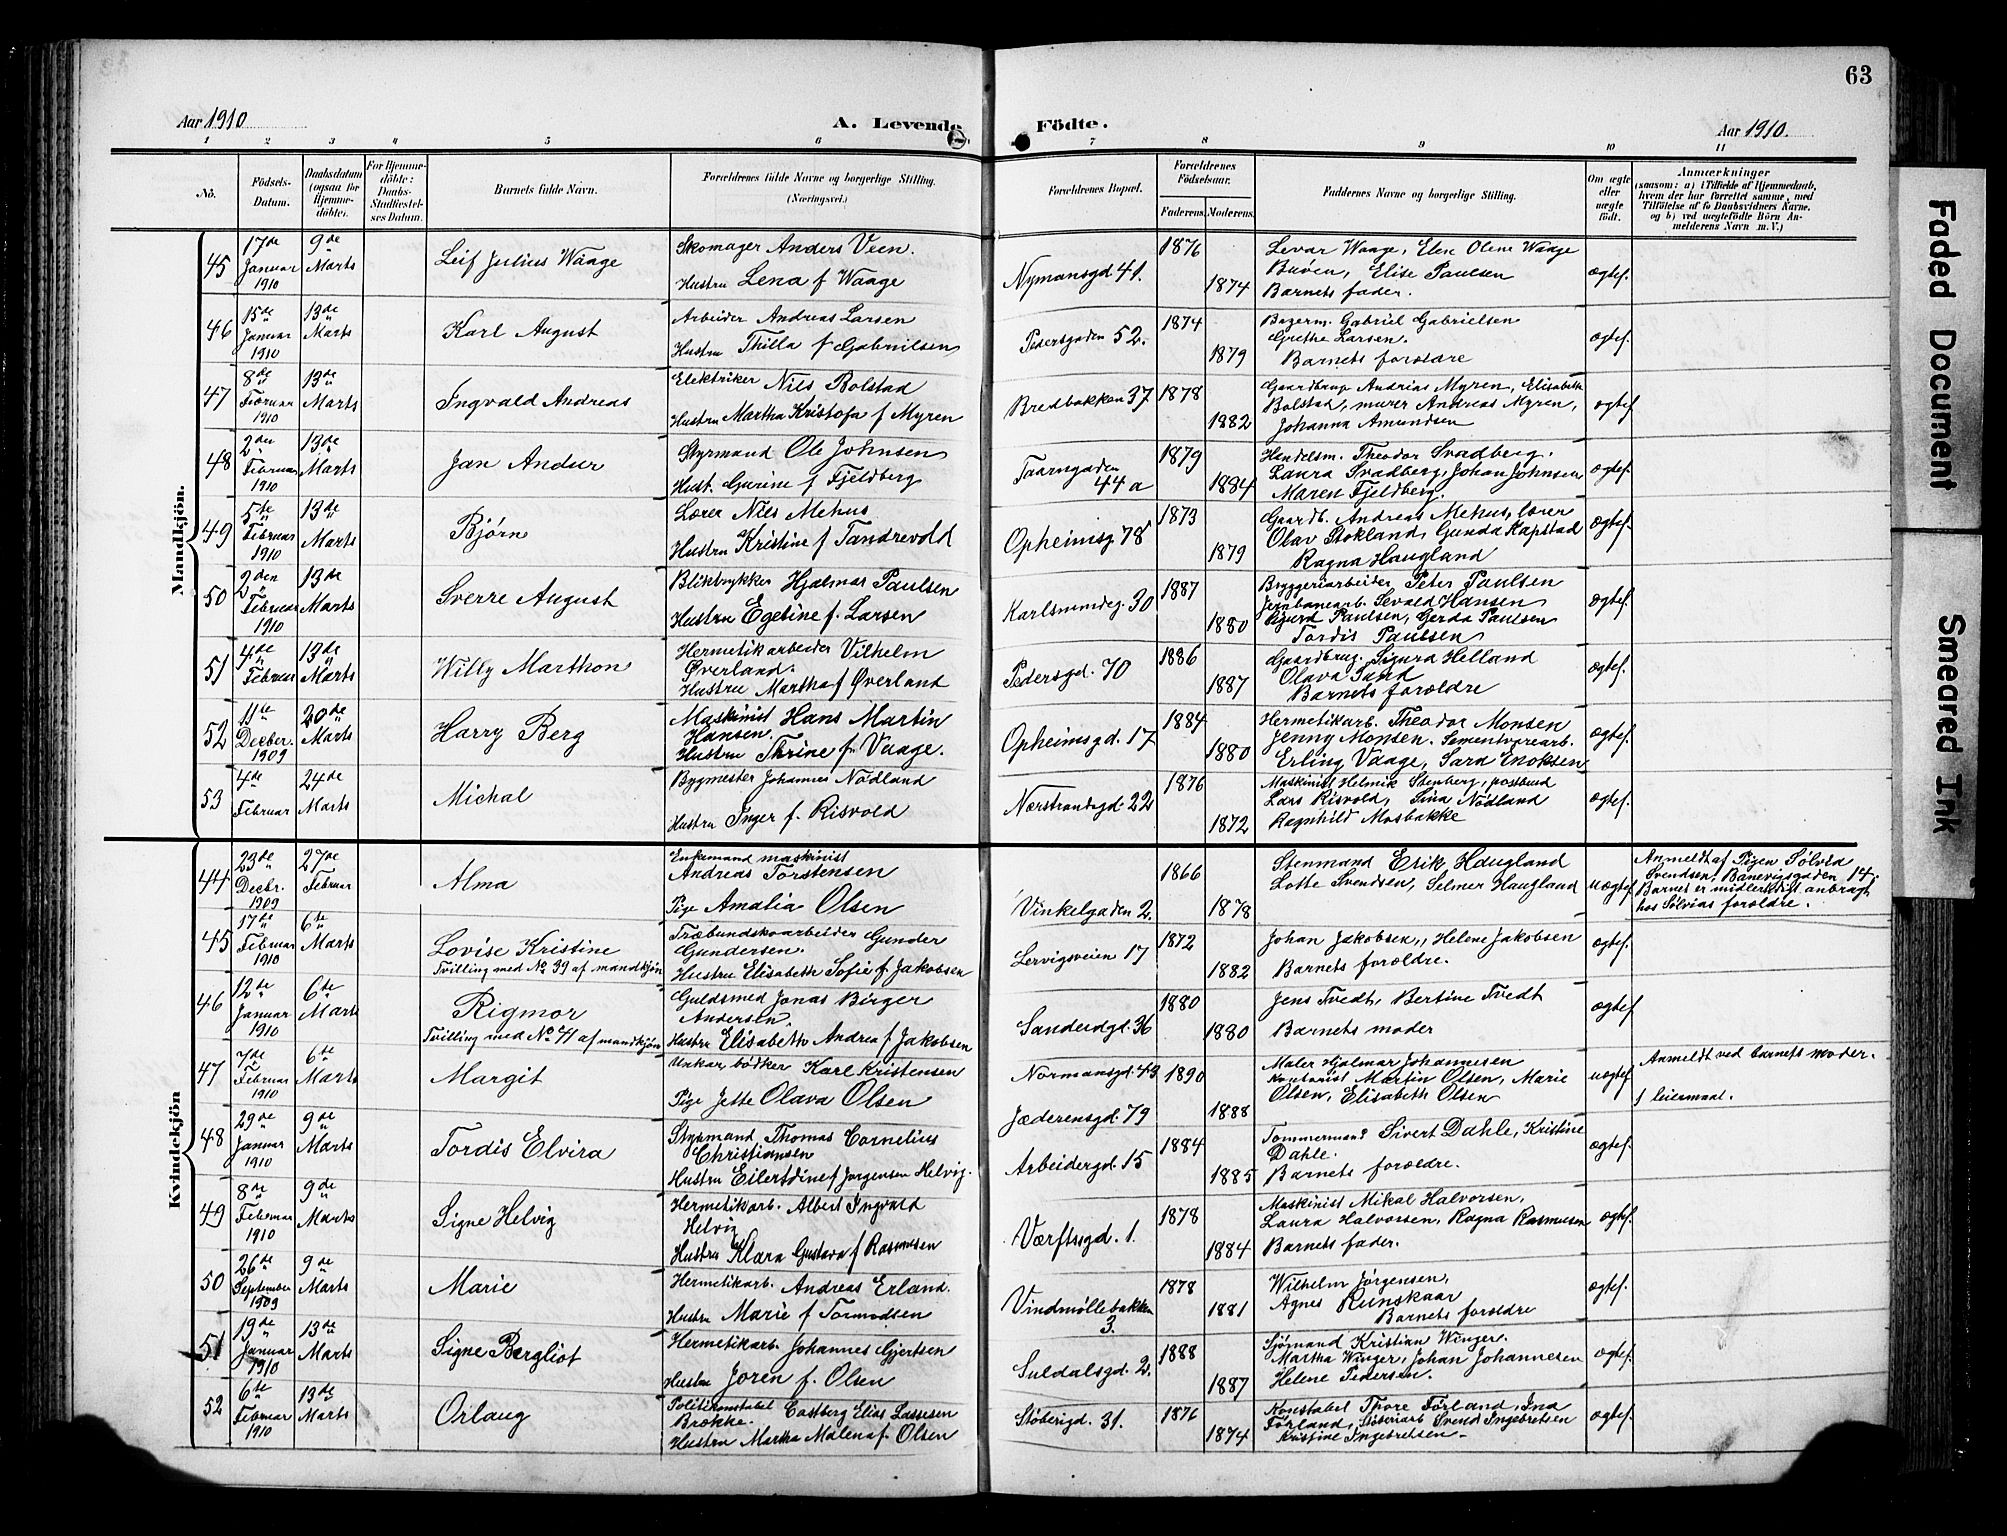 63
Aar 1910
A. Levende
Födte.
Aar 1910.
1 2 3 4 5 6 7 8 9 10 11
No.
Födsels-Datum.
Daabsdatum (ogsaa for Hjemme-döbte).
For Hjemme-döbte: Daabs-Stadfæstel-ses Datum.
Barnets fulde Navn.
Forældrenes fulde Navne og borgerlige Stilling. (Næringsvei.)
Forældrenes Bopæl.
Forældrenes Födselsaar.
Faderens. Moderens.
Faddernes Navne og borgerlige Stilling.
Om ægte eller uægte födt.
Anmærkninger
(saasom: a) i Tilfælde af Hjemmedaab, hvem der har forrettet samme, med Tilföielse af to Daabsvidners Navne, og b) ved uægtefödte Börn An-melderens Navn m. V.)
Mandkjön.
45 17de Januar 1910 9de Marts Leif Julius Waage
Skomager Anders Veen.
Hustru Lena f Waage
Nymansgd 41. 1876 1874
Levar Waage, Elen Oline Waage
Buøen, Elise Paulsen
Barnets fader.
ægtef.
46 15de Januar 1910 13de Marts Karl August
Arbeider Andreas Larsen
Hustru Thilla f Gabrielsen
Pedersgaden 52. 1874 1879
Bøgerm. Gabriel Gabrielsen
Grethe Larsen.
Barnets forældre
ægtef.
47 8de Februar 1910 13de Marts Ingvald Andreas
Elektriker Nils Bolstad
Hustru Martha Kristofa f Myren
Bredbakken 37 1878 1882
Gaardbrug Andrias Myren, Elisabeth
Bolstad, murer Andreas Myren,
Johanna Amundsen
ægtef
48 2den Februar 1910 13de Marts Jan Andur
Styrmand Ole Johnsen
Hust. Gurine f Fjeldberg
Taarngaden 44 a 1879 1884
Handelsm. Theodor Svadberg.
Laura Svadberg, Johan Johnsen
Maren Fjeldberg.
ægtef.
49 5te Februar 1910 13de Marts Bjørn
Lærer Nils Mehus
Hustru Kristine f Tandrevold
Opheimsg 78 1873 1879
Gaardb. Andreas Mehus, lærer
Olav Stokland, Gunda Kapstad
Ragna Haugland
ægtef.
50 2den Februar 1910 13de Marts Sverre August
Bliktrykker Hjalmar Paulsen
Hustru Egeline f. Larsen
Karlsmindeg. 30 1887 1880
Bryggeriarbeider Peter Paulsen
Jernbanearb. Sevald Hansen
Sigurd Paulsen, Gerda Paulsen
Tordis Paulsen
ægtef.
51 4de Februar 13de Marts Willy Marthon
Hermetikarbeider Vilhelm
Øverland.
Hustru Martha f Øverland
Pedersgd. 70 1886 1887
Gaardbrug. Sigurd Helland
Olava Sand
Barnets forældre
ægtef.
52 11te Decber. 1909 20de Marts Harry Berg
Maskinist Hans Martin
Hansen.
Hustru Thrine f. Vaage.
Opheimsgd. 17 1884 1880
Hermetikarb. Theodor Monsen
Jenny Monsen. Sementvarearb.
Erling Vaage, Sara Enoksen
ægtef.
53 4de Februar 24de Marts Michal
Bygmester Johannes Nødland
Hustru Inger f. Risvold
Nærstrandsgd. 22 1876 1872
Maskinist Helmik Stenberg, postbud
Lars Risvold, Sina Nødland
Ragnhild Mosbakke
ægtef.
Kvindekjön
44 23de Decbr. 1909 27de Februar Alma
Enkemand maskinist
Andreas Torstensen
Pige Amalia Olsen
Vinkelgaden 2. 1866 1878
Stenmand Erik Haugland
Lotte Svendsen, Selmer Haugland
uægtef
Anmeldt af Pigen Sølvia
Svendsen, Banevigsgaden 14.
Barnet er midlertidigt anbragt
hos Sølvias forældre.
45 17de Februar 1910 6te Marts Lovise Kristine
Tvilling med No 39 af mandkjøn
Træbundskoarbeider Gunder
Gundersen.
Hustru Elisabeth Sofie f. Jakobsen
Lervigsveien 17 1872 1882
Johan Jakobsen,, Helene Jakobsen
Barnets forældre.
ægtef.
46 12te Januar 1910 6te Marts Rigmor
Tvilling med No 41 af mandkjøn
Guldsmed Jonas Birger
Andersen.
Hustru Elisabeth Andrea f Jakobsen
Sandesdgd. 36 1880 1880
Jens Tvedt, Bertine Tvedt
Barnets moder
ægtef
47 7de Februar 1910 6te Marts Margit
Unkar bødker Karl Kristensen
Pige Jette Olava Olsen
Normansgd. 43
Jæderensgd. 79 1890 1888
Maler Hjalmar Johannesen
Kontorist Martin Olsen, Marie
Olsen, Elisabeth Olsen
uægtef
Anmeldt ved barnets moder.
1 leiermaal.
48 29de Januar 1910 9de Marts Tordis Elvira
Styrmand Thomas Cornelius
Christiansen
Hustru Eilertdine f Jorgensen Helvig.
Arbeidergd. 15 1884 1885
Tommermand Sivert Dahle, Kristine
Dahle.
Barnets forældre.
ægtef.
49 8de Februar 1910 9de Marts Signe Helvig
Hermetikarb. Albert Ingvald
Helvig
Hustru Klara Gustava f Rasmusen
Værftsgd. 1. 1878 1884
Maskinist Mikal Halvorsen,
Laura Halvorsen, Ragna Rasmusen
Barnets fader.
ægtef.
50 26de September 1909 9de Marts Marie
Hermetikarb. Andreas Erland.
Hustru Marie f Tormodsen
Vindmøllebakken 3. 1878 1881
Wilhelm Jørgensen,
Agnes Runskaar
Barnets forældre
ægtef.
51 19de Januar 1910 13de Marts Signe Bergliot
Hermetikarb. Johannes Gjertsen
Hustru Joren f. Olsen
Suldalsgd. 2. 1888 1887
Sjømand Kristian Winger.
Martha Winger, Johan Johannesen
Helene Pedersen.
ægtef.
52 6te Februar 1910 13de Marts Orlaug
Politikonstabel Castberg Elias Lassesen
Brække.
Hustru Martha Malena f. Olsen
Støberigd. 31. 1876 1874
Konstabel Thore Førland, Ina
Førland, Støberiarb Svend Ingebretsen
Kristine Ingebretsen.
ægtef.
Faded Document
Smeared Ink